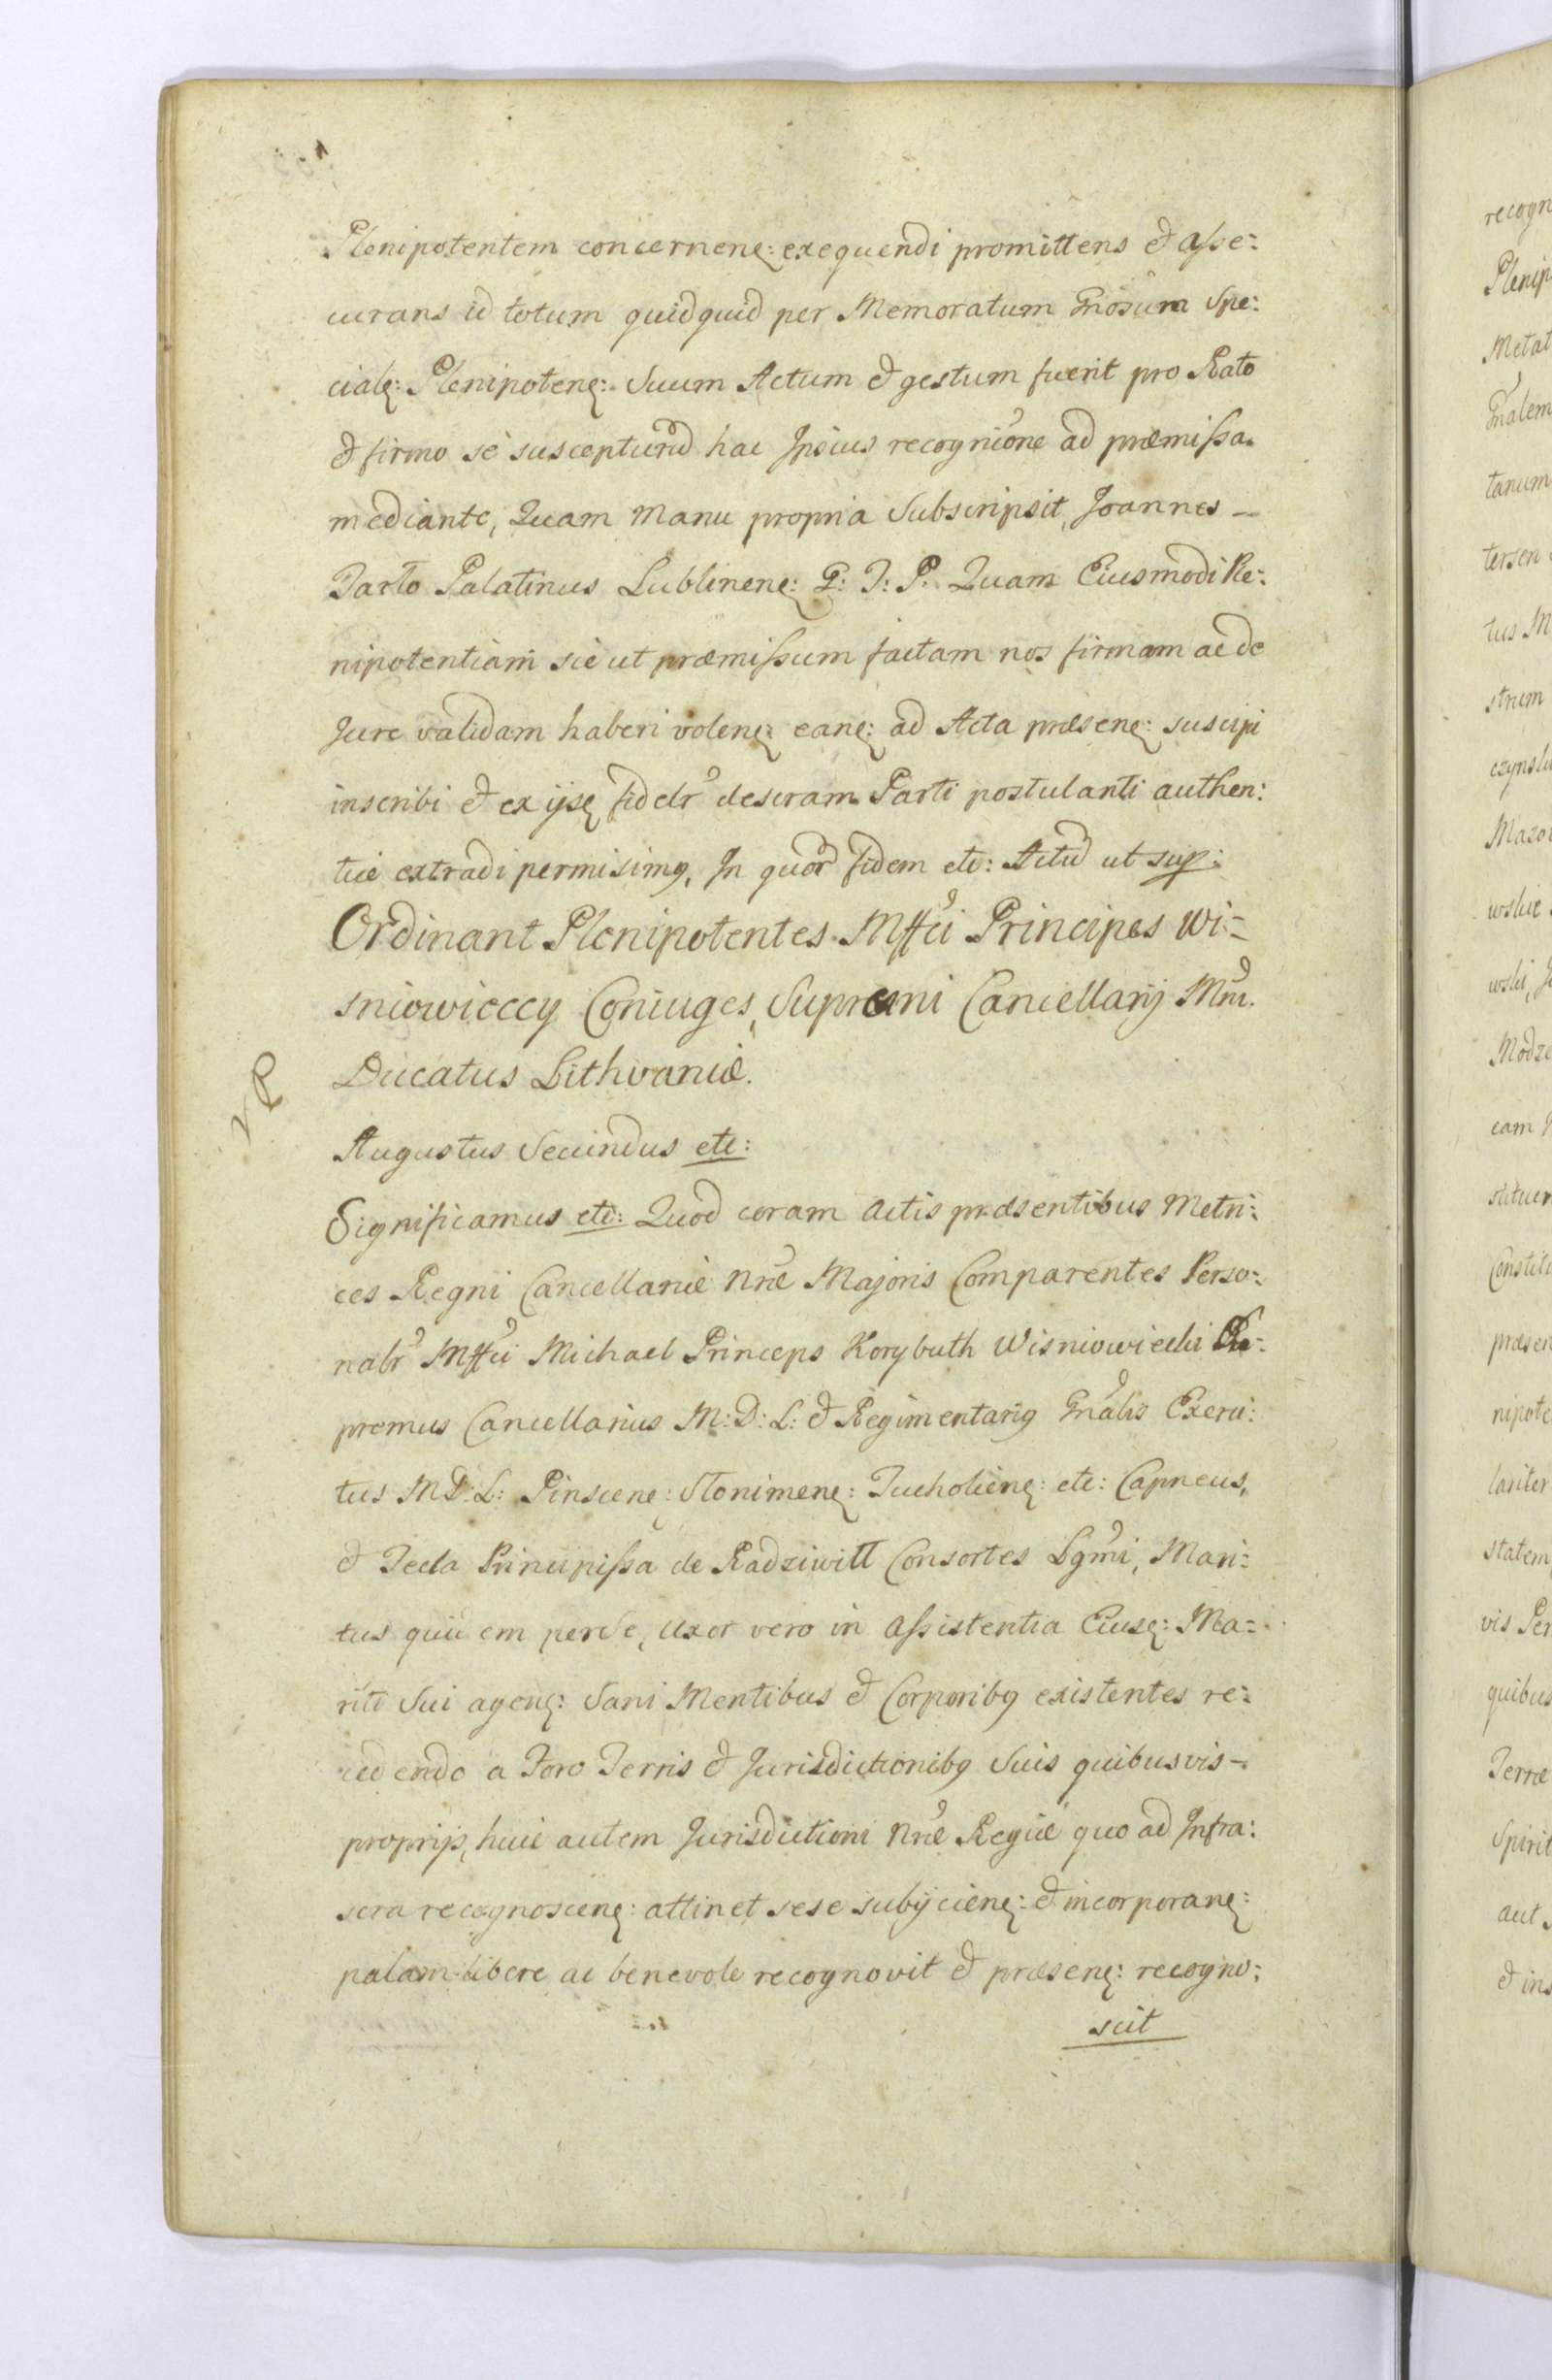 Plenipotentem concernenę: exequendi promittens & asse:
curans id totum quidquid per Memoratum Gnosum Spe:
cialę: Plenipotenę: Suum Actum & gestum fuerit pro Rato
& firmo se suscepturū hac Ipsius recognione ad præmissa
mediante, Quam Manu propria Subscripsit, Joannes –
Tarło Palatinus Lublinenę: G: T: P: Quam Eiusmodi Ple:
nipotentiam sic ut præmissum factam nos firmam ac de
Jure validam haberi volenę: eanę: ad Acta præsenę: suscipi
inscribi & ex ijsę fidelr descram Parti postulanti authen:
tice extradi permisimꝯ, In quor fidem etc: Actū ut sup:
Ordinant Plenipotentes Mffci Principes Wi-
sniowieccy Coniuges, Supremi Cancellarij Mni.
Ducatus Lithvaniæ.
Augustus Secundus etc:
Significamus etc: Quod coram Actis præsentibus Metri:
ces Regni Cancellariæ Nræ Majoris Comparentes Perso:
nalr Mffci Michael Princeps Korybuth Wisniowiecki Su-
premus Cancellarius M: D: L: & Regimentariꝯ Gnalis Exerci:
tus M D: L: Pinscenę: Słonimenę: Tucholienę: etc: Capneus,
& Tecla Principissa de Radziwiłł Consortes Lgmi, Mari:
tus quidem per se, uxor vero in Assistentia Eiusę: Ma-
riti Sui agenę: Sani Mentibus & Corporibꝯ existentes re:
cedendo a Foro Terris & Jurisdictionibꝯ Suis quibusvis –
proprijs, huic autem Jurisdictioni Nræ Regiæ quo ad Infra:
scra recognoscenę: attinet sese subijcienę: & incorporanę:
palam libere ac benevole recognovit & præsenę: recogno:
scit